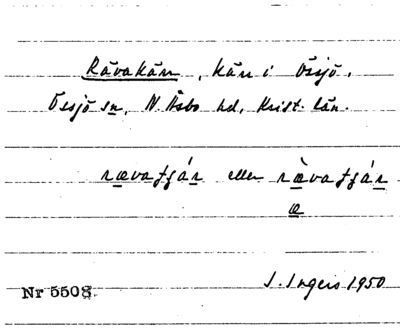 Rävakärr, kärr i Össjö,
Össjö sn, N. Åsbo hd, Krist. län.
rævatʃár eller rævatʃár
æ
Nr 5508 I. Ingers 1950